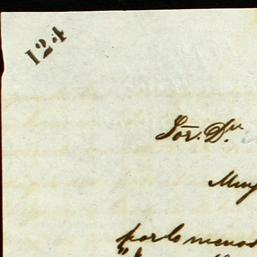 124
Sōr. Dn
Muy
por lo menos